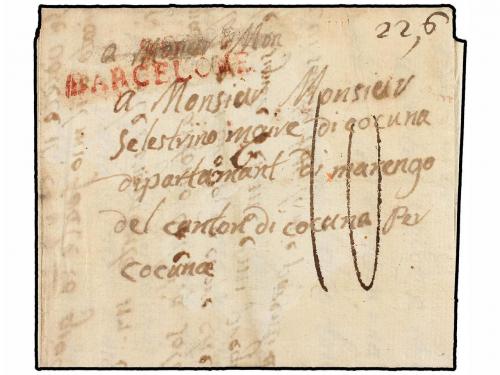 22,6
a Monsieur Mon
BARCELONE
a Monsieur Monsieur
Selestrino maire di cocuna
dipartamant di marengo
del canton di cocuna Per
cocunae
10